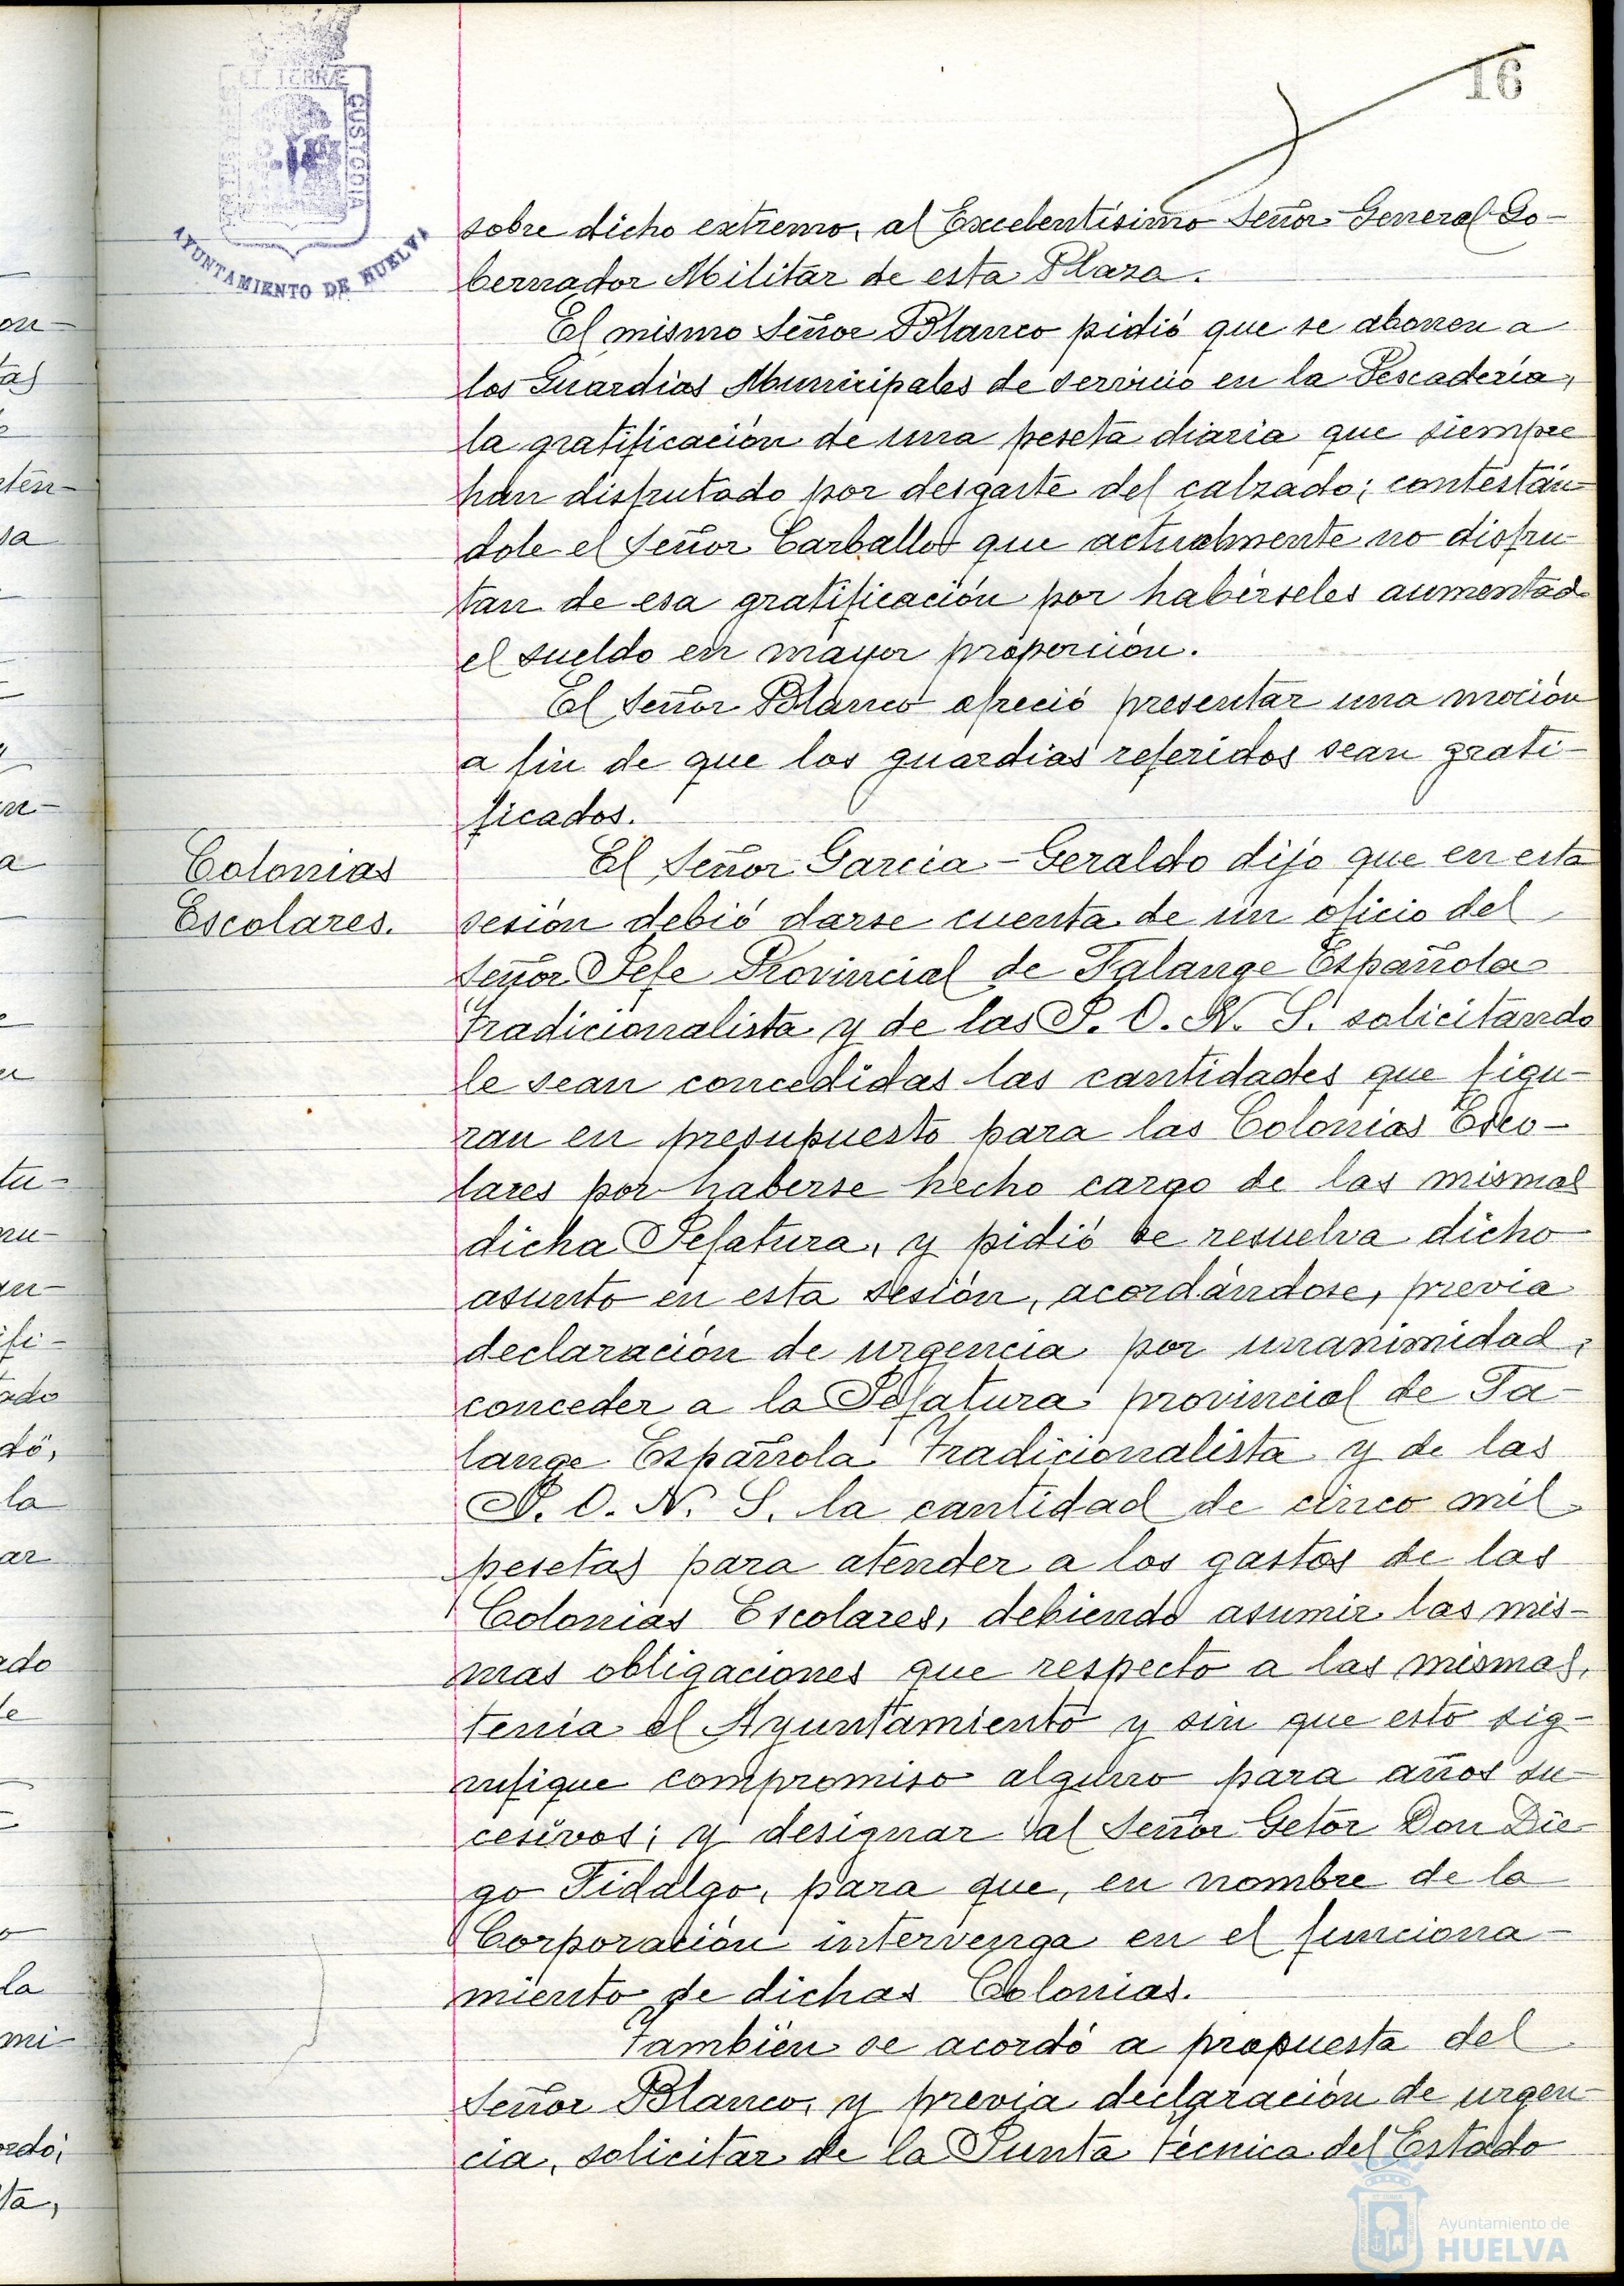 16
ET TERRÆ
CUSTODIA
AYUNTAMIENTO DE HUELVA
sobre dicho extremo, al Excelentísimo Señor General Go-
bernador Militar de esta Plaza.
El mismo Señor Blanco pidió que se abonen a
los Guardias Municipales de servicio en la Pescadería,
la gratificación de una peseta diaria que siempre
han disfrutado por desgaste del calzado; contestán-
dole el Señor Carballo que actualmente no disfru-
tan de esa gratificación por habérseles aumentado
el sueldo en mayor proporción.
El Señor Blanco ofreció presentar una moción
a fin de que los guardias referidos sean grati-
ficados.
Colonias
Escolares.
El Señor Garcia-Geraldo dijo que en esta
sesión debió darse cuenta de un oficio del
Señor Jefe Provincial de Falange Española
Tradicionalista y de las J. O. N. S. solicitando
le sean concedidas las cantidades que figu-
ran en presupuesto para las Colonias Esco-
lares por haberse hecho cargo de las mismas
dicha Jefatura, y pidió se resuelva dicho
asunto en esta sesión, acordándose, previa
declaración de urgencia por unanimidad,
conceder a la Jefatura provincial de Fa-
lange Española Tradicionalista y de las
J. O. N. S. la cantidad de cinco mil
pesetas para atender a los gastos de las
Colonias Escolares, debiendo asumir las mis-
mas obligaciones que respecto a las mismas,
tenía el Ayuntamiento y sin que esto sig-
nifique compromiso alguno para años su-
cesivos; y designar al Señor Getor Don Die-
go Fidalgo, para que, en nombre de la
Corporación intervenga en el funciona-
miento de dichas Colonias.
También se acordó a propuesta del
Señor Blanco, y previa declaración de urgen-
cia, solicitar de la Junta Técnica del Estado
Ayuntamiento de
HUELVA